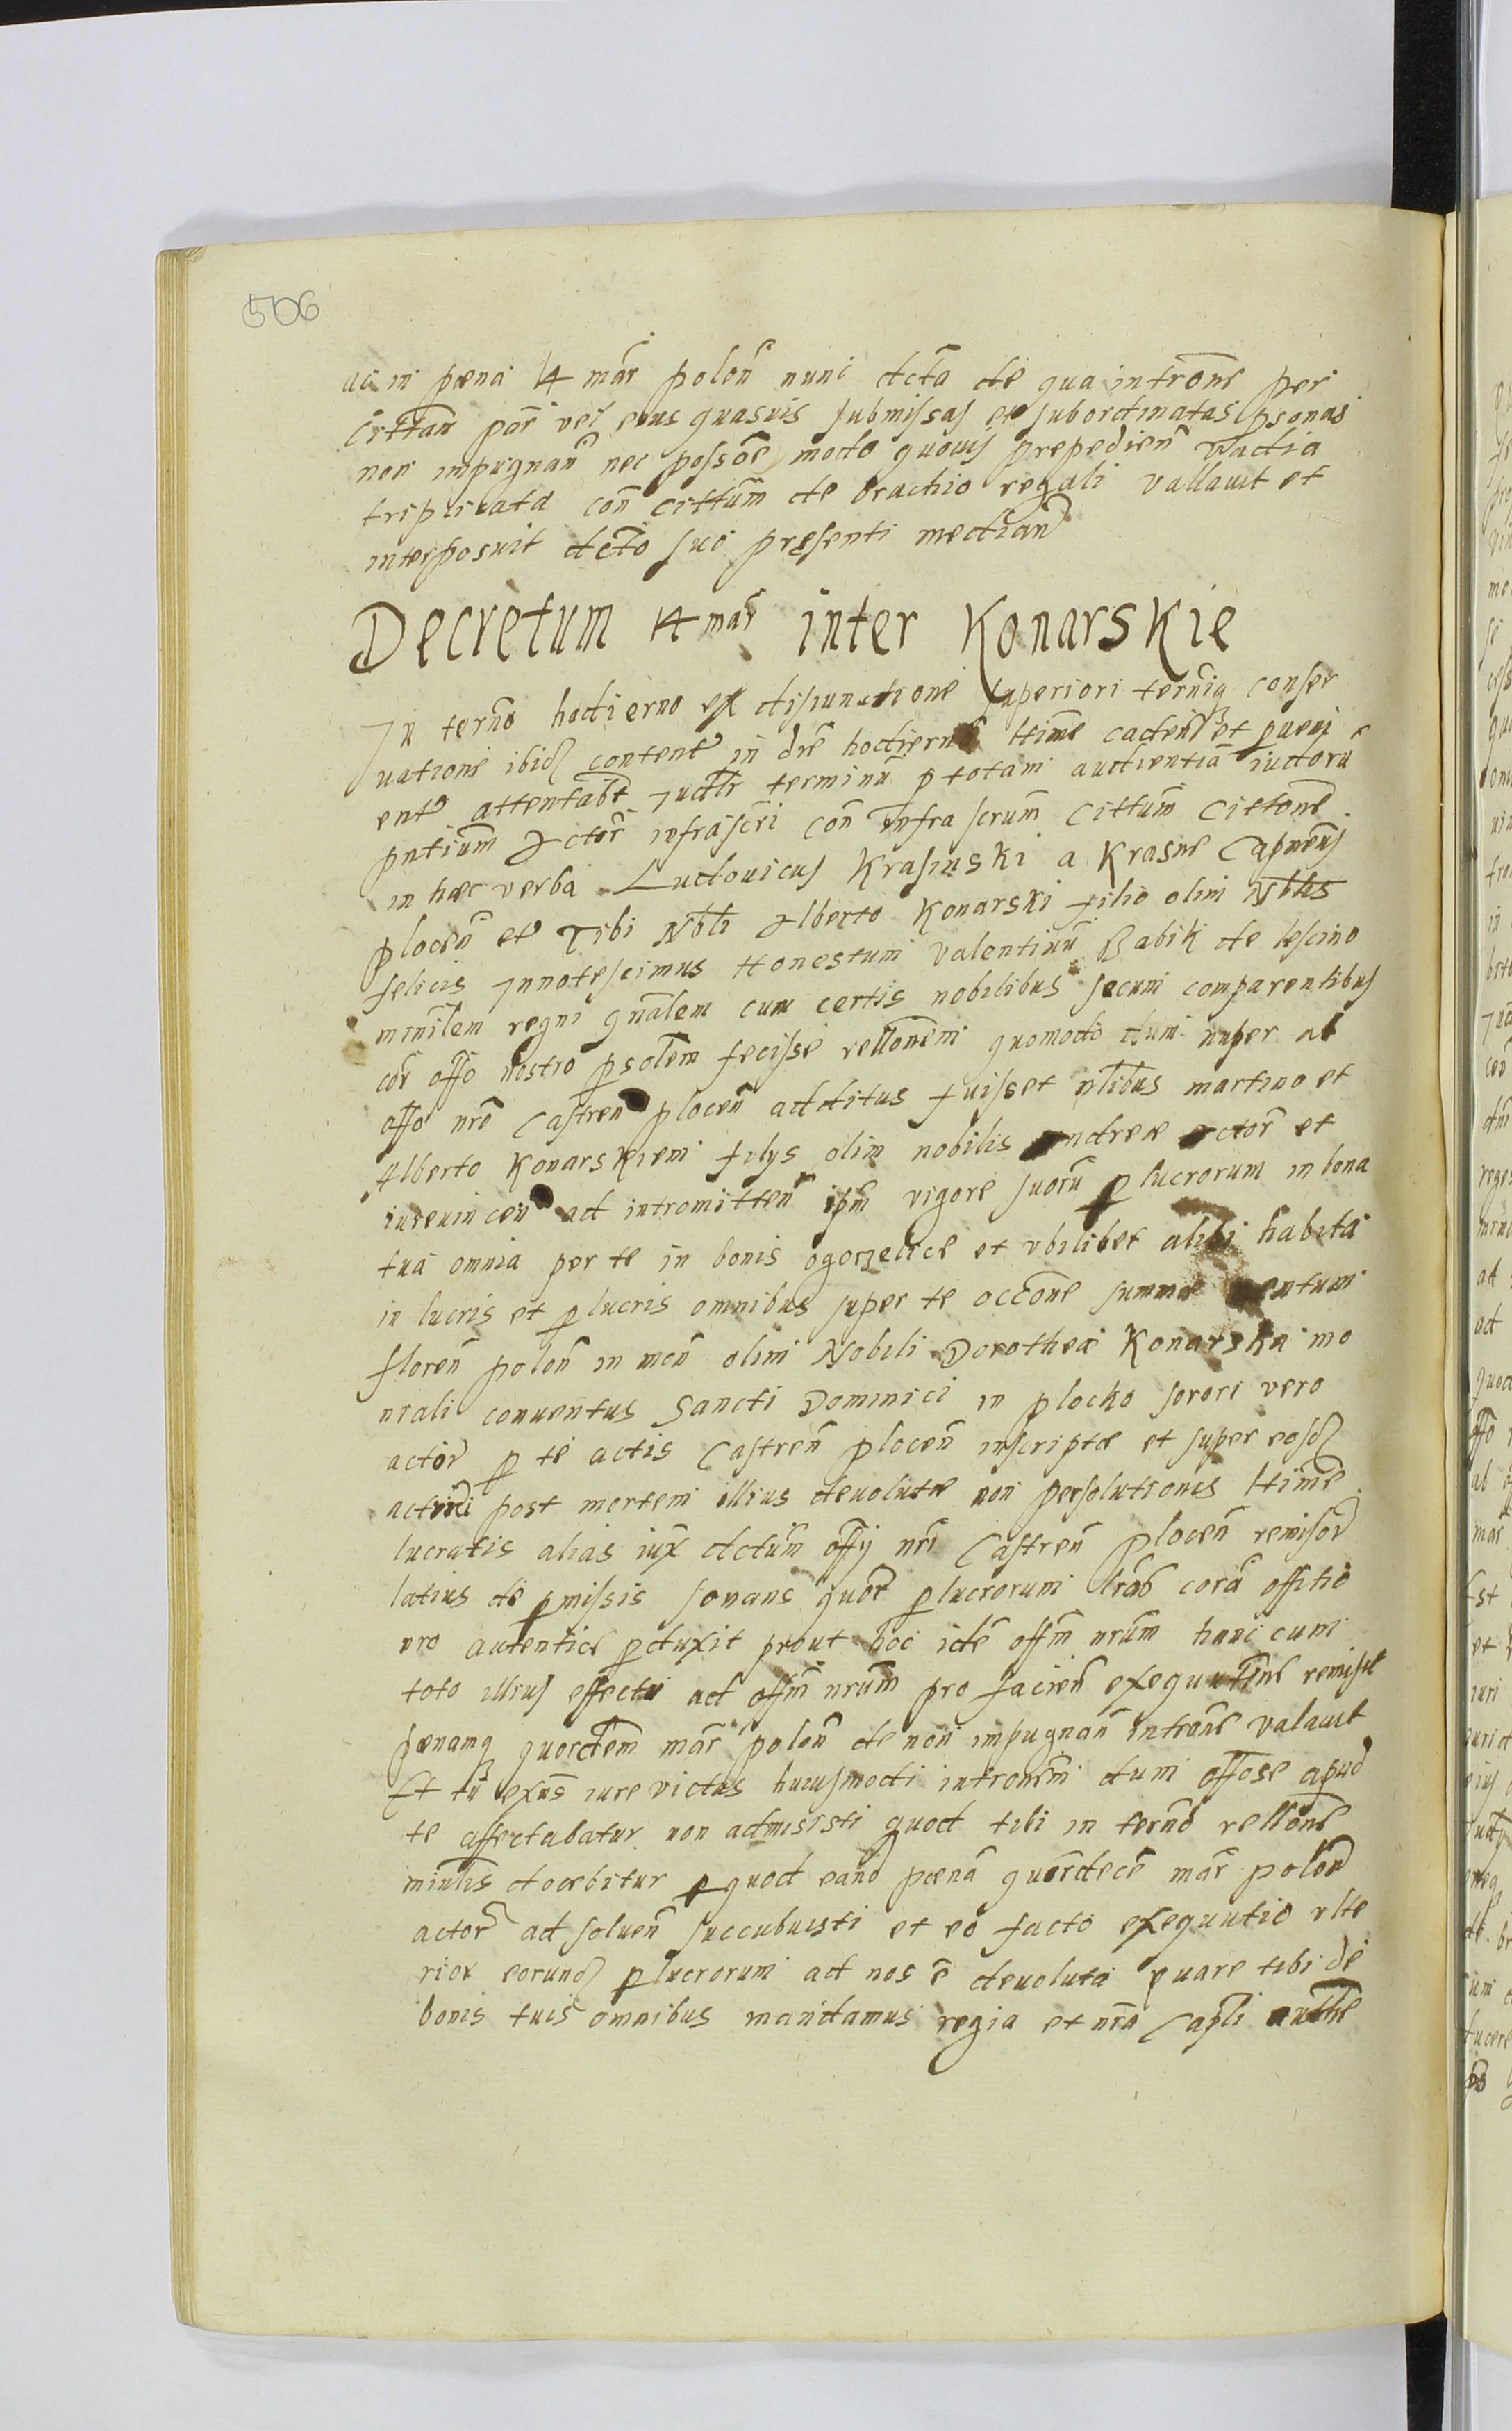 506
ac in pœna 14 mār polon̄ nunc dctā de qua intronē per
cittatū pār vel eius quasuis submissas et subordinatas psonas
non impugnan̄ nec possoē modo quouis prepedien̄ vadia
triplicata con̄ cittum̄ de brachio regali vallauit et
interposuit dcto suo pręsenti median̄
Decretum 14 mar inter Konarskie
In terno hodierno ex disiunctione superiori termia conser
uatione ibid content in diē hodiernā ltime caden et pueni
ent attentabt Judltr terminū p totam audientiā iudorū
pntium Actor infrascri con̄ infra scrum̄ cittum̄ cittone
in hæc verba Ludouicus Krasinski a Krasne Capneus
plocen̄ et Tibi Nbli Alberto Konarski filio olim Nblis
felicis Innotescimus Honestum valentinū Babik de lescino
minlem regni gnalem cum certis nobilibus secum comparentibus
cor̄ offo nostro psolem fecisse rellonem quomodo dum nuper ab
offo nro Castren̄ plocen̄ additus fuisset nlibus martino et
Alberto Konarskiem filys olim nobilis Andreæ Actor et
iureuincen̄ ad intromitten̄ ipm̄ vigore suorū p lucrorum in bona
tua omnia per te in bonis ogorzelice et vbilibet alibi habita
in lucris et p lucris omnibus super te occone summæ Centum
floren̄ polon̄ in mon̄ olim Nobili Dorotheæ Konarska mo
niali conuentus Sancti Dominici in plocko sorori vero
actor p te actis Castren̄ plocen̄ inscriptæ et super eosd
post mortem illius deuolutæ non persolutionis ltime
lucratis alias iux dctum̄ offy nri Castren̄ Plocen̄ remisor
latius de pmissis sonans quor p lucrorum corā offitio
nro autentice pduxit prout hoc idē offm̄ nrum̄ hanc cum
toto illius effectu ad offm̄ nrum̄ pro facien̄ exequutine remisit
pœnamq quordem mār polon̄ de non impugnan̄ intronē valauit
Et tu exns iure victus huiusmodi intronem dum offose apud
te affectabatur non admisisti quod tibi in terno rellone
minlis docebitur p quod eand pœnā quordecē mār polon̄
actor ad soluen̄ succubuisti et eo facto exequutio vlte
rior eorund p lucrorum ad nos ē deuoluta quare tibi de
bonis tuis omnibus mandamus regia et nra Capli authe